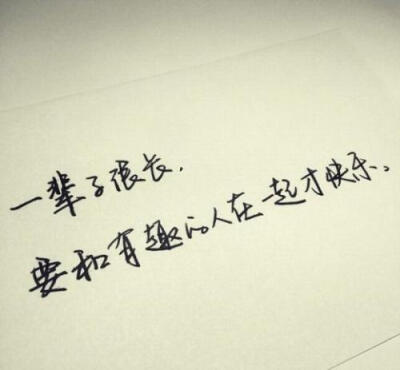 一辈子很长.
要和有趣的人在一起才快乐。